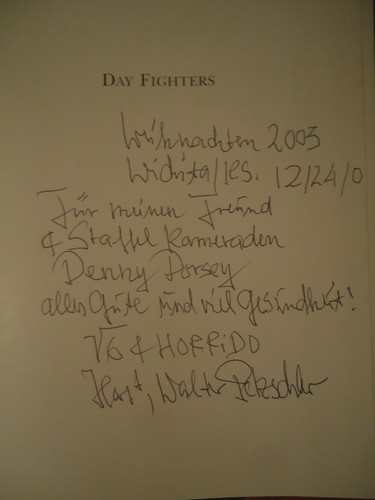 DAY FIGHTERS
Weihnachten 2003
Wichita/KS. 12/24/0
Für meinen Freund
& Staffel Kameraden
Denny Dorsey
alles Gute und viel Gesundheit!
& HORRIDO
Horst, Walter Petzschler